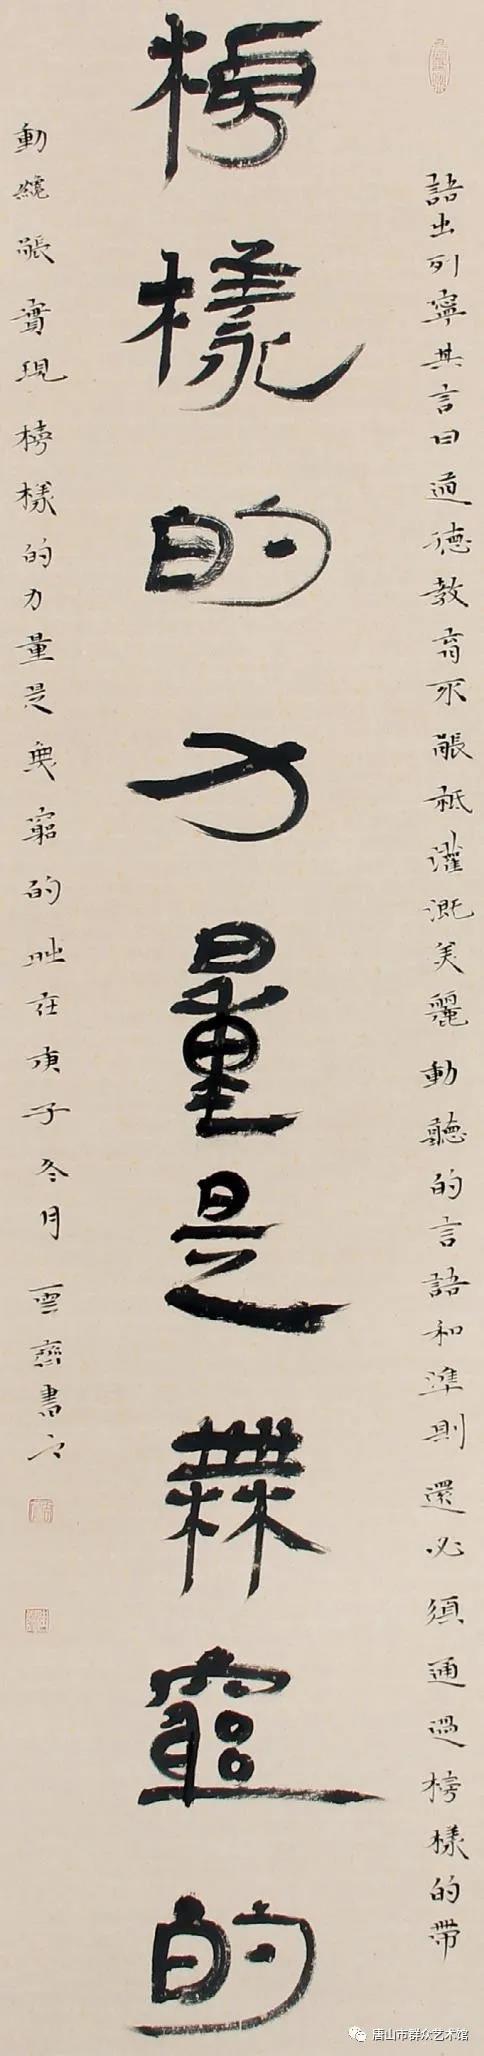 語出列寧其言曰道德教育不能祇灌溉美麗動聽的言語和準則還必須通過榜樣的帶
榜樣的力量是無窮的
動纔能實現榜樣的力量是無窮的歲在庚子冬月雲齋書
唐山市群众艺术馆